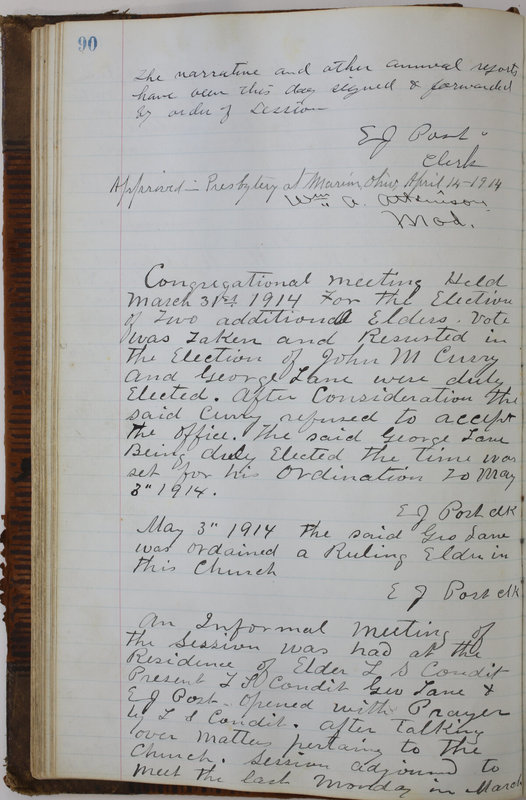 90
The narrative and other annual reports
have been this day signed & forwarded
by order of Session
E J Post
Clerk
Approved in Presbytery at Marion, Ohio April 14-1914
Wm A. Atkinson
Mod.
Congregational meeting Held
March 31st 1914 For the Election
of Two additional Elders. Vote
was Taken and Resurted in
the Election of John M Curry
and George Lane were duly
Elected. After Consideration the
said Curry refused to accept
the office. The said George Lane
Being duly Elected the time was
set for his Ordination To May
3" 1914.
E J Post clk
May 3" 1914 the said Geo Lane
was ordained a Ruling Elder in
this Church
E J Post clk
An Informal meeting of
the Session was had at the
Residence of Elder L S Condit
Present L S Condit Geo Lane &
E J Post - opened with Prayer
by L S Condit. After Talking
over Matters pertang to the
Church. Session adjournd to
meet the last Monday in March